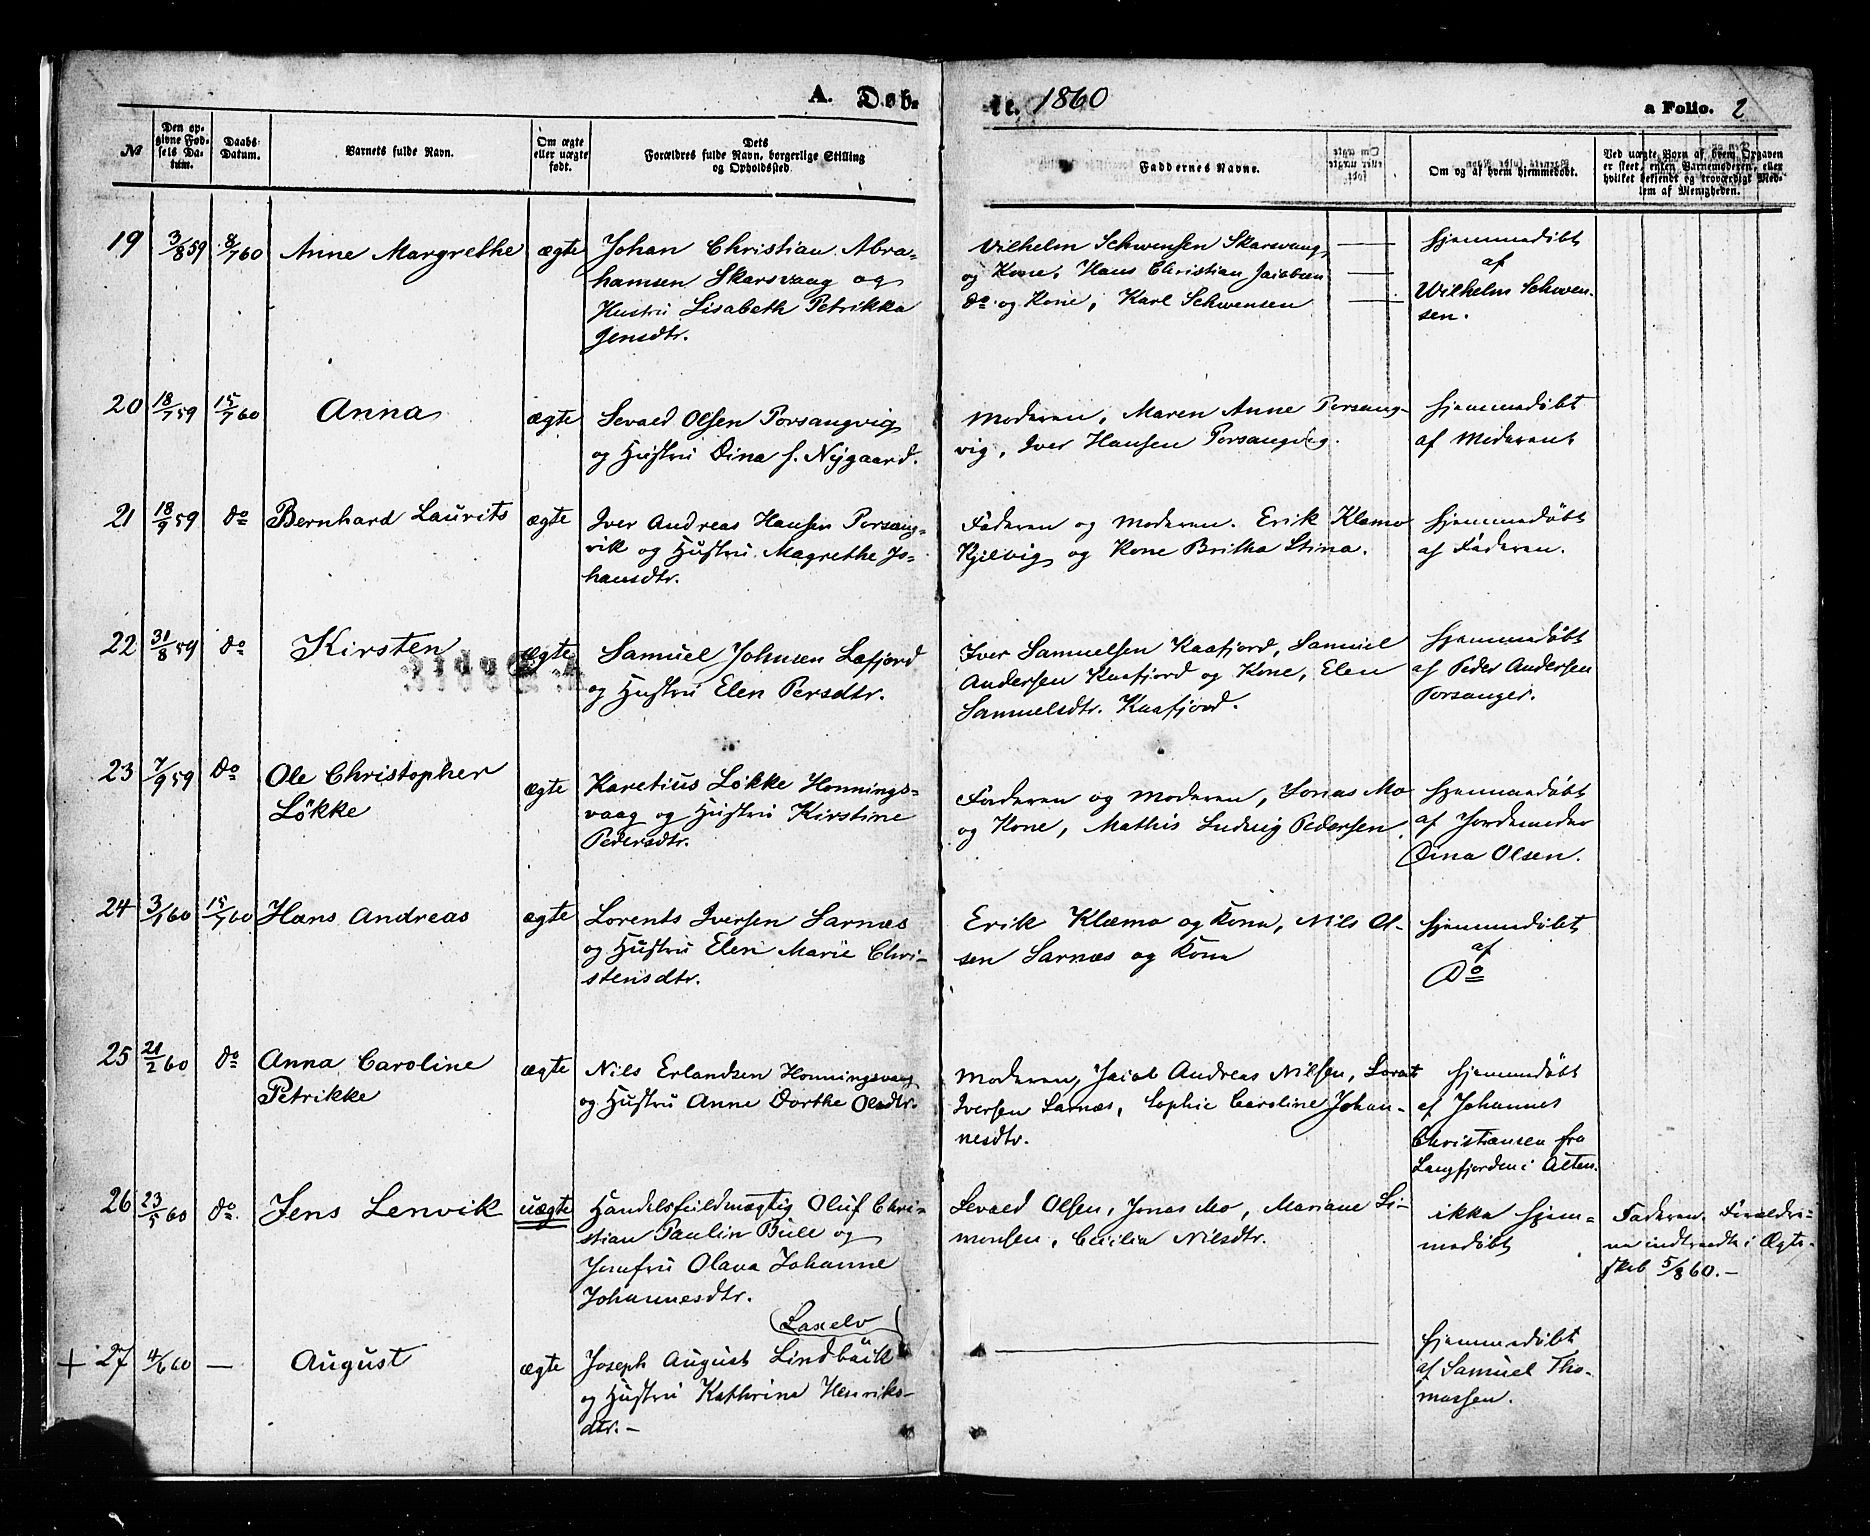 A. Døb-
te. 1860
a Folio. 2
№
Den op-
givne Fød-
sels Da-
tum.
Daabs-
Datum.
Barnets fulde Navn.
Om ægte
eller uægte
født.
Dets
Forældres fulde Navn, borgerlige Stilling
og Opholdssted.
Faddernes Navne.
Om og af hvem hjemmedøbt.
Ved uægte Børn af hvem Opgaven
er skeet, enten Barnemoderen, eller
hvilket bekjendt og troværdigt Med-
lem af Menigheden.
19 3/8 59 8/7 60 Anne Margrethe ægte
Johan Christian Abra-
hamsen Skarsvaag og
Hustru Lisabeth Petrikka
Jensdtr.
Vilhelm Schwensen Skarsvaag
og Kone, Hans Christian Jacobsen
do og Kone, Karl Schwensen
hjemmedøbt
af
Wilhelm Schwen-
sen.
20 18/7 59 15/7 60 Anna ægte
Sevald Olsen Porsangvig
og Hustru Dina f. Nygaard.
Moderen, Maren Anne Porsang-
vig, Iver Hansen Porsangvig.
hjemmedøbt
af Moderen
21 18/9 59 do Bernhard Laurits ægte
Iver Andreas Hansen Porsang-
vik og Hustru Magrethe Jo-
hansdtr.
Faderen og Moderen. Erik Klemo
Kjelvig og Kone Britha Stina.
hjemmedøbt
af Faderen.
22 31/8 59 do Kirsten ægte
Samuel Johnsen Lafjord
og Hustru Elen Persdtr.
Iver Samuelsen Kaafjord, Samuel
Andersen Kaafjord og Kone, Elen
Samuelsdtr. Kaafjord.
hjemmedøbt
af Peder Andersen
Porsanger.
23 7/9 59 do Ole Christopher
Løkke
ægte
Karetius Løkke Honnings-
vaag og Hustru Kirstine
Pedersdtr.
Faderen og Moderen, Jonas Mo
og Kone, Mathis Ludvig Pedersen.
hjemmedøbt
af Jordemoder
Dina Olsen.
24 3/1 60 15/7 60 Hans Andreas ægte
Lorents Iversen Sarnæs
og Hustru Elen Marie Chri-
stensdtr.
Erik Klæmo og Kone, Nils Ol-
sen Sarnæs og Kone
hjemmedøbt
af
Do
25 21/2 60 do Anna Caroline
Petrikke
ægte
Nils Erlandsen Honningsvaag
og Hustru Anne Dorthe Olsdtr.
Moderen, Jacob Andreas Nilsen, Lorents
Iversen Sarnæs, Sophie Caroline Johan-
nesdtr.
hjemmedøbt
af Johannes
Christiansen fra
Langfjorden i Alten.
26 23/5 60 do. Jens Lenvik uægte
Handelsfuldmægtig Oluf Chri-
stian Paulin Bull og
Jomfru Olava Johanne
Johannesdtr.
Sevald Olsen, Jonas Mo, Mariane Si-
monsen, Cecilia Nilsdtr.
ikke hjem-
medøbt
Faderen. Forældre-
ne indtraadte i Ægte-
skab 5/8 60.-
+ 27 4/6 60 — August ægte
Laxelv
Joseph August Lindbäck
og Hustru Kathrina Henriks-
dtr.-
hjemmedøbt
af Samuel Tho-
massen.